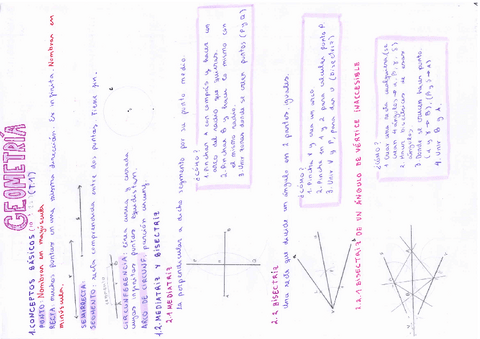 GEOMETRÍA
1. CONCEPTOS BÁSICOS (T.1)
PUNTO: Nombran en mayúscula
RECTA: muchos puntos en una misma dirección. Es infinita. Nombran en
minúscula.
SEMIRRECTA
SEGMENTO: recta comprendida entre dos puntos. Tiene fin.
CIRCUNFERENCIA: línea curva y cerrada
cuyos infinitos puntos equidistan.
ARCO DE CIRCUNF: porción circunf.
1.2. MEDIATRIZ Y BISECTRIZ
2.1 MEDIATRIZ
la perpendicular a dicho segmento por su punto medio.
¿CÓMO?
1. Pinchar A con compás y hacer un
arco del radio que quieras.
2. Pinchar B y hacer lo mismo con
el mismo radio.
3. Unir rectas donde se unen puntos (P y Q)
2.2 BISECTRIZ
Una recta que divide un ángulo en 2 partes iguales.
¿CÓMO?
1. Pincha V y usa un arco.
2. Pincha en 1 y 2 para calcular punto P.
3. Unir V y P, para dar U (bisectriz)
2.2.1 BISECTRIZ DE UN ÁNGULO DE VÉRTICE INACCESIBLE
¿CÓMO?
1. Crear una recta cualquiera (se
crean ángulos →
2. Hacer bisectrices de esos
ángulos
3. Donde se crucen hacer punto.
4. Unir B y A.